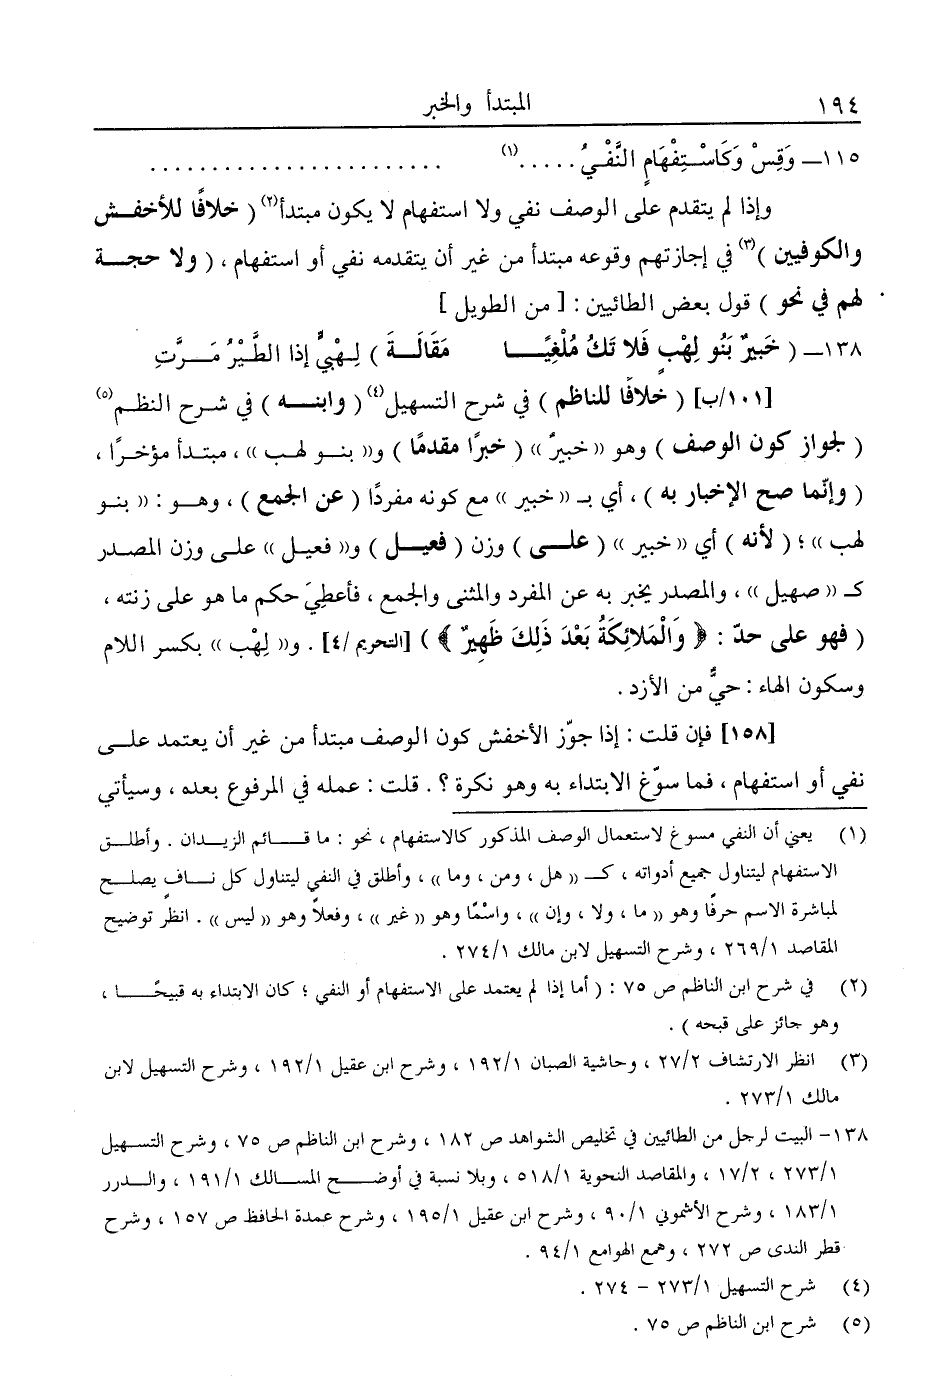 ١٩٤ المبتدأ والخبر
١١٥ــ وَقِسْ وَكَاسْـتِفْهَامٍ النَّفْـيُ .....(١) ........................
وإذا لم يتقدم على الوصف نفي ولا استفهام لا يكون مبتدأ(٢) ( خلافًا للأخفش
والكوفيين )(٣) في إجازتهم وقوعه مبتدأ من غير أن يتقدمه نفي أو استفهام ، ( ولا حجـــة
لهم في نحو ) قول بعض الطائيين : [ من الطويل ]
١٣٨ــ ( خَبِيرٌ بَنُو لِهْبٍ فَلا تَكُ مُلْغِيًـــا مَقَالَــةَ ) لِـهْبِيٍّ إذا الطَّيْرُ مَــرَّتِ
[١٠١/ب] ( خلافًا للناظم ) في شرح التسهيل(٤) ( وابنـــه ) في شـرح النظـم(٥)
( لجواز كون الوصف ) وهو « خبيرٌ » ( خبرًا مقدمًا ) و« بنــو لهب » ، مبتـدأ مؤخـرًا ،
( وإنّما صح الإخبار به ) ، أي بـ « خبير » مع كونه مفردًا ( عن الجمع ) ، وهــو : « بنـو
لهب » ؛ ( لأنه ) أي « خبير » ( علــى ) وزن ( فعيــل ) و« فعيـل » علـى وزن المصـدر
كـ « صهيل » ، والمصدر يخبر به عن المفرد والمثنى والجمع ، فأعطِيَ حكم ما هو على زنته ،
( فهو على حدّ : ﴿ وَالْمَلائِكَةُ بَعْدَ ذَلِكَ ظَهِيرٌ ﴾ ) [التحريم /٤] . و« لِهْب » بكسر اللام
وسكون الهاء : حيٌّ من الأزد .
[١٥٨] فإن قلت : إذا جوّز الأخفش كون الوصف مبتدأ من غير أن يعتمد علـى
نفي أو استفهام ، فما سوّغ الابتداء به وهو نكرة ؟ . قلت : عمله في المرفوع بعده ، وسيأتي
(١) يعني أن النفي مسوغ لاستعمال الوصف المذكور كالاستفهام ، نحو : ما قــائم الزيـدان . وأطلـق
الاستفهام ليتناول جميع أدواته ، كـ « هل ، ومن ، وما » ، وأطلق في النفي ليتناول كل نــافٍ يصلـح
لمباشرة الاسم حرفًا وهو « ما ، ولا ، وإن » ، واسْمًا وهو « غير » ، وفعلاً وهو « ليس » . انظر توضيح
المقاصد ٢٦٩/١ ، وشرح التسهيل لابن مالك ٢٧٤/١ .
(٢) في شرح ابن الناظم ص ٧٥ : ( أما إذا لم يعتمد على الاستفهام أو النفي ؛ كان الابتداء به قبيحًــا ،
وهو جائز على قبحه ) .
(٣) انظر الارتشاف ٢٧/٢ ، وحاشية الصبان ١٩٢/١ ، وشرح ابن عقيل ١٩٢/١ ، وشرح التسهيل لابن
مالك ٢٧٣/١ .
١٣٨- البيت لرجل من الطائيين في تخليص الشواهد ص ١٨٢ ، وشرح ابن الناظم ص ٧٥ ، وشرح التسـهيل
٢٧٣/١ ، ١٧/٢ ، والمقاصد النحوية ٥١٨/١ ، وبلا نسبة في أوضــح المسـالك ١٩١/١ ، والـدرر
١٨٣/١ ، وشرح الأشموني ٩٠/١ ، وشرح ابن عقيل ١٩٥/١ ، وشرح عمدة الحافظ ص ١٥٧ ، وشرح
قطر الندى ص ٢٧٢ ، وهمع الهوامع ٩٤/١ .
(٤) شرح التسهيل ٢٧٣/١ – ٢٧٤ .
(٥) شرح ابن الناظم ص ٧٥ .